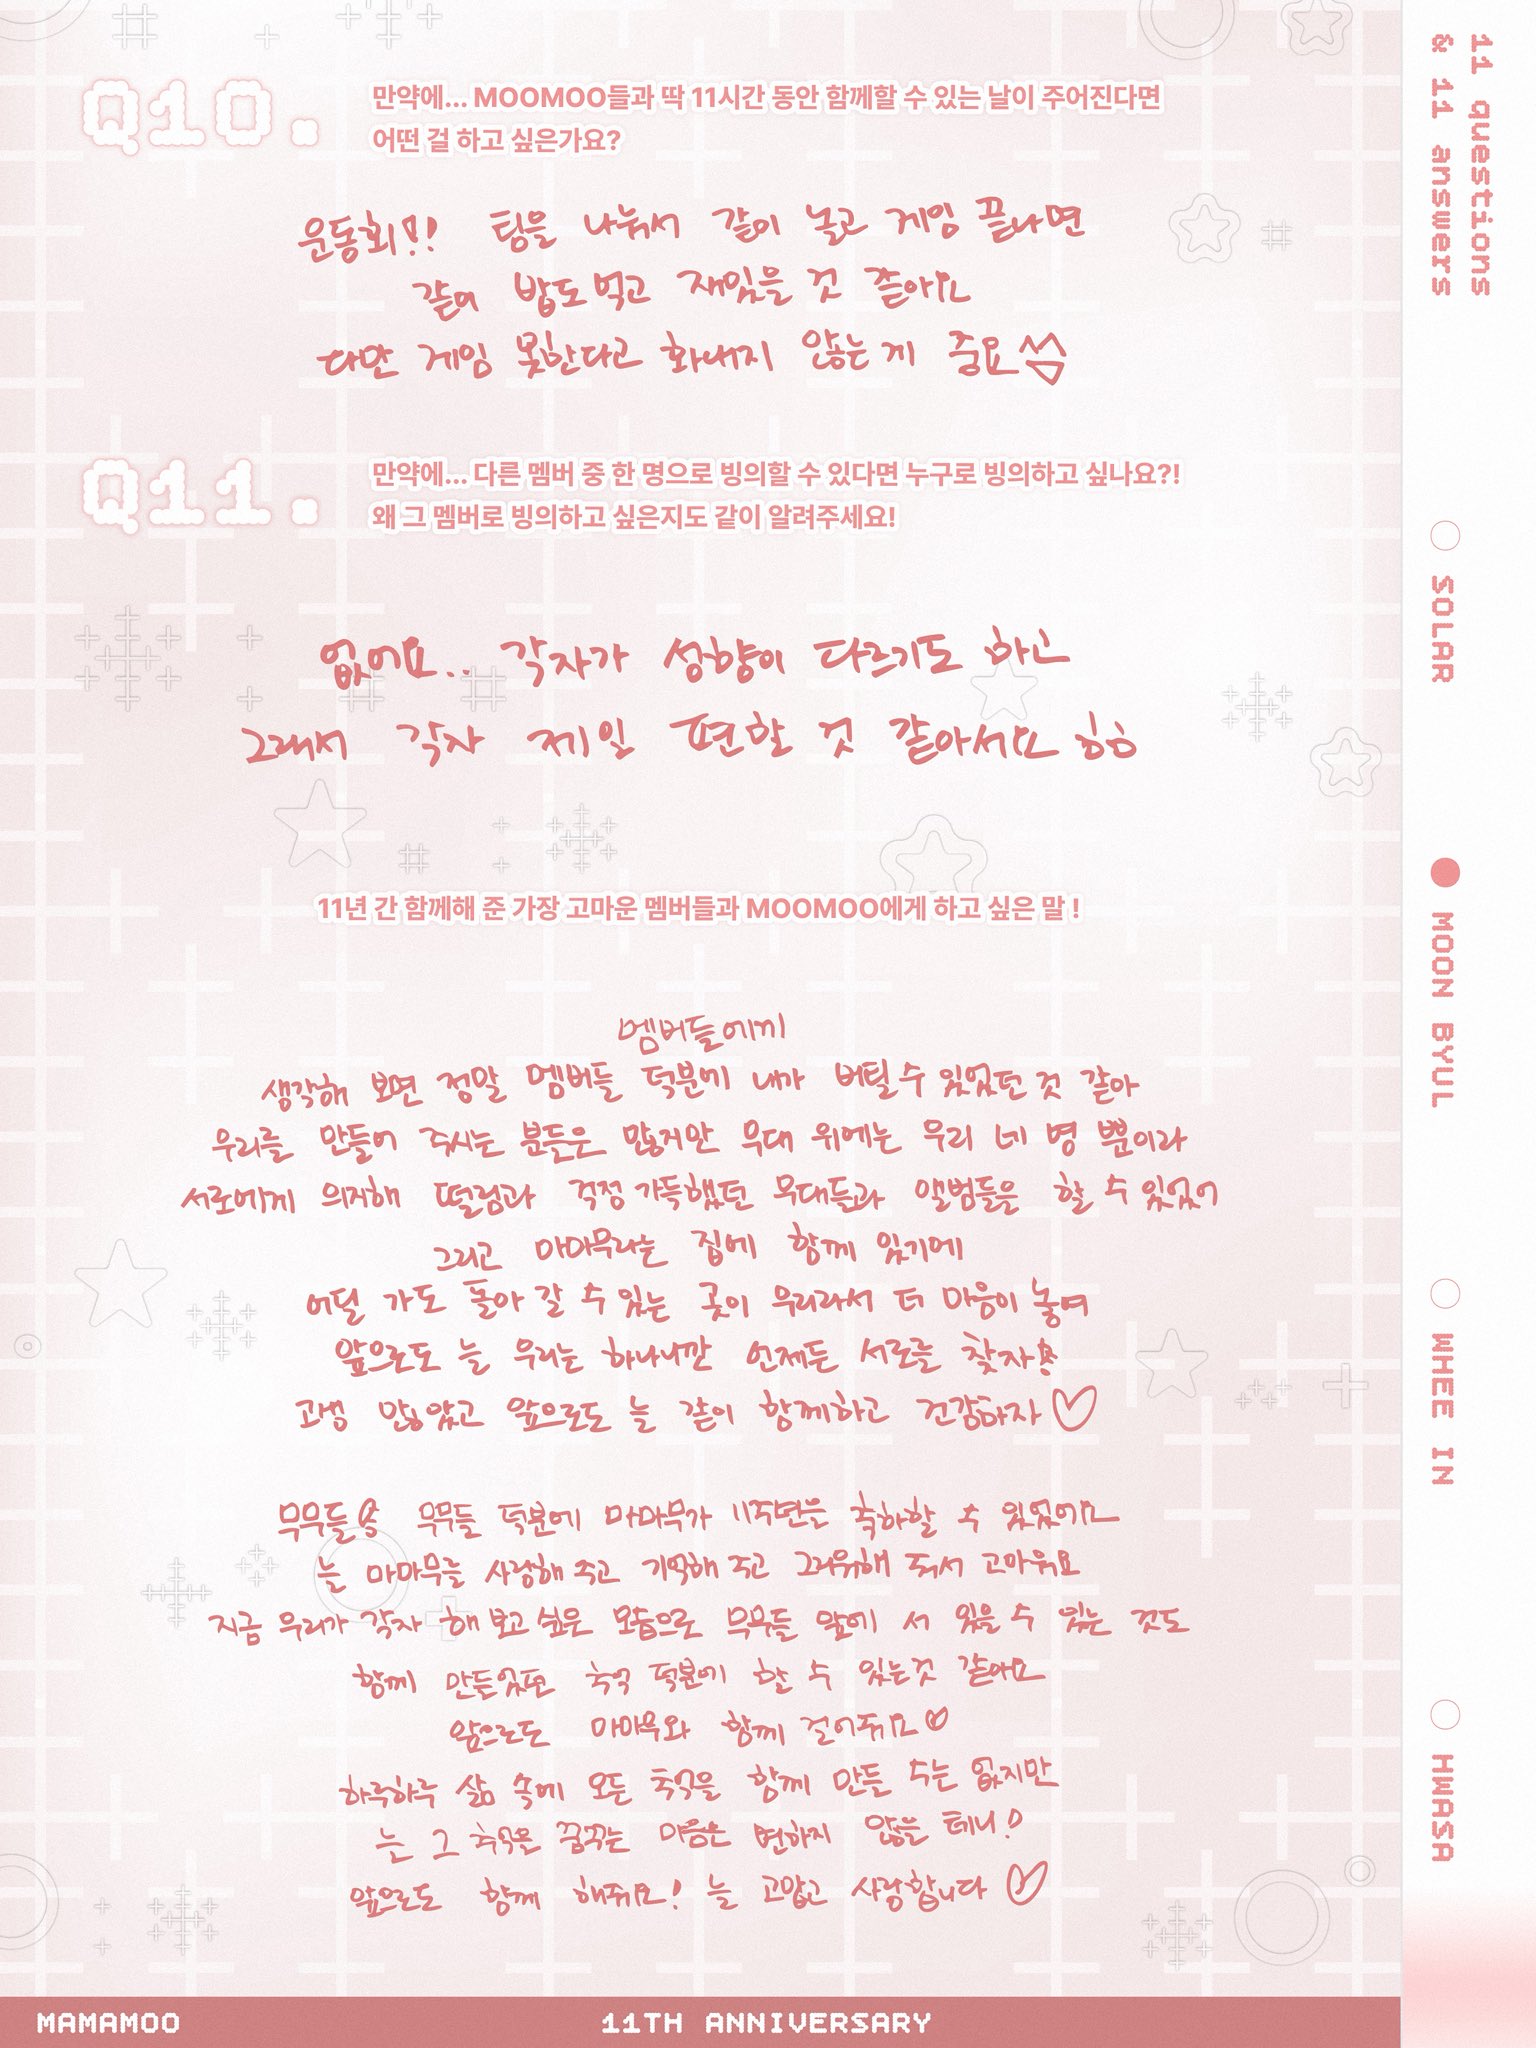 Q10.
만약에... MOOMOO들과 딱 11시간 동안 함께할 수 있는 날이 주어진다면
어떤 걸 하고 싶은가요?
운동회!! 팀을 나눠서 같이 놀고 게임 끝나면
같이 밥도 먹고 재밌을 것 같아요
다만 게임 못한다고 화내지 않는 게 중요
Q11.
만약에... 다른 멤버 중 한 명으로 빙의할 수 있다면 누구로 빙의하고 싶나요?!
왜 그 멤버로 빙의하고 싶은지도 같이 알려주세요!
없어요.. 각자가 성향이 다르기도 하고
그래서 각자 제일 편할 것 같아서요 ㅎㅎ
11년 간 함께해 준 가장 고마운 멤버들과 MOOMOO에게 하고 싶은 말 !
멤버들에게
생각해 보면 정말 멤버들 덕분에 내가 버틸 수 있었던 것 같아
우리를 만들어 주시는 분들은 많지만 무대 위에는 우리 네 명 뿐이라
서로에게 의지해 떨림과 걱정 가득했던 무대들과 앨범들을 할 수 있었어
그리고 마마무라는 집에 함께 있기에
어딜 가도 돌아 갈 수 있는 곳이 우리라서 더 마음이 놓여
앞으로도 늘 우리는 하나니깐 언제든 서로를 찾자!
고생 많았고 앞으로도 늘 같이 함께하고 건강하자♡
무무들! 무무들 덕분에 마마무가 11주년을 축하할 수 있었어요
늘 마마무를 사랑해 주고 기억해 주고 그리워해 줘서 고마워요
지금 우리가 각자 해 보고 싶은 모습으로 무무들 앞에 서 있을 수 있는 것도
함께 만들었던 추억 덕분에 할 수 있는 것 같아요
앞으로도 마마무와 함께 걸어줘요♡
하루하루 삶 속에 모든 추억을 함께 만들 수는 없지만
늘 그 추억을 꿈꾸는 마음은 변하지 않을 테니!
앞으로도 함께 해줘요! 늘 고맙고 사랑합니다♡
11 questions
& 11 answers
SOLAR
MOON BYUL
WHEE IN
HWASA
MAMAMOO
11TH ANNIVERSARY